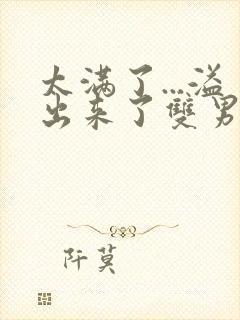 太满了...溢
出来了雙男
阡莫